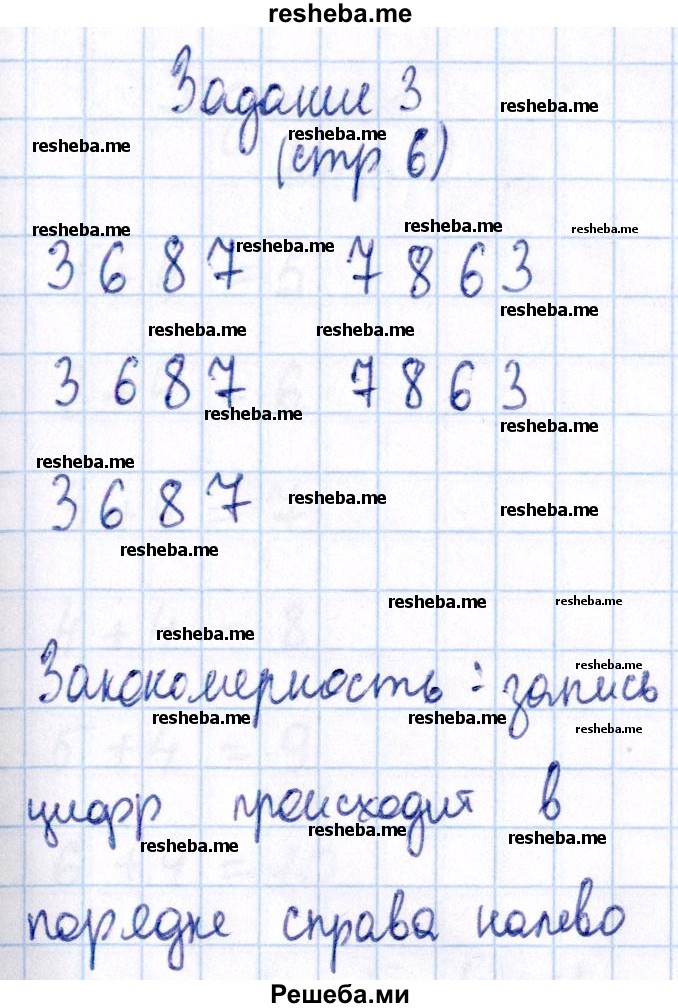 resheba.me
Задание 3
resheba.me
resheba.me resheba.me
(стр 6)
resheba.me resheba.me resheba.me resheba.me
3 6 8 7 7 8 6 3
resheba.me
resheba.me resheba.me
3 6 8 7 7 8 6 3
resheba.me
resheba.me
resheba.me
3 6 8 7
resheba.me
resheba.me
resheba.me
resheba.me resheba.me
resheba.me
resheba.me
Закономерность : запись
resheba.me resheba.me
resheba.me
цифр происходит в
resheba.me resheba.me resheba.me
порядке справа налево
Решеба.ми